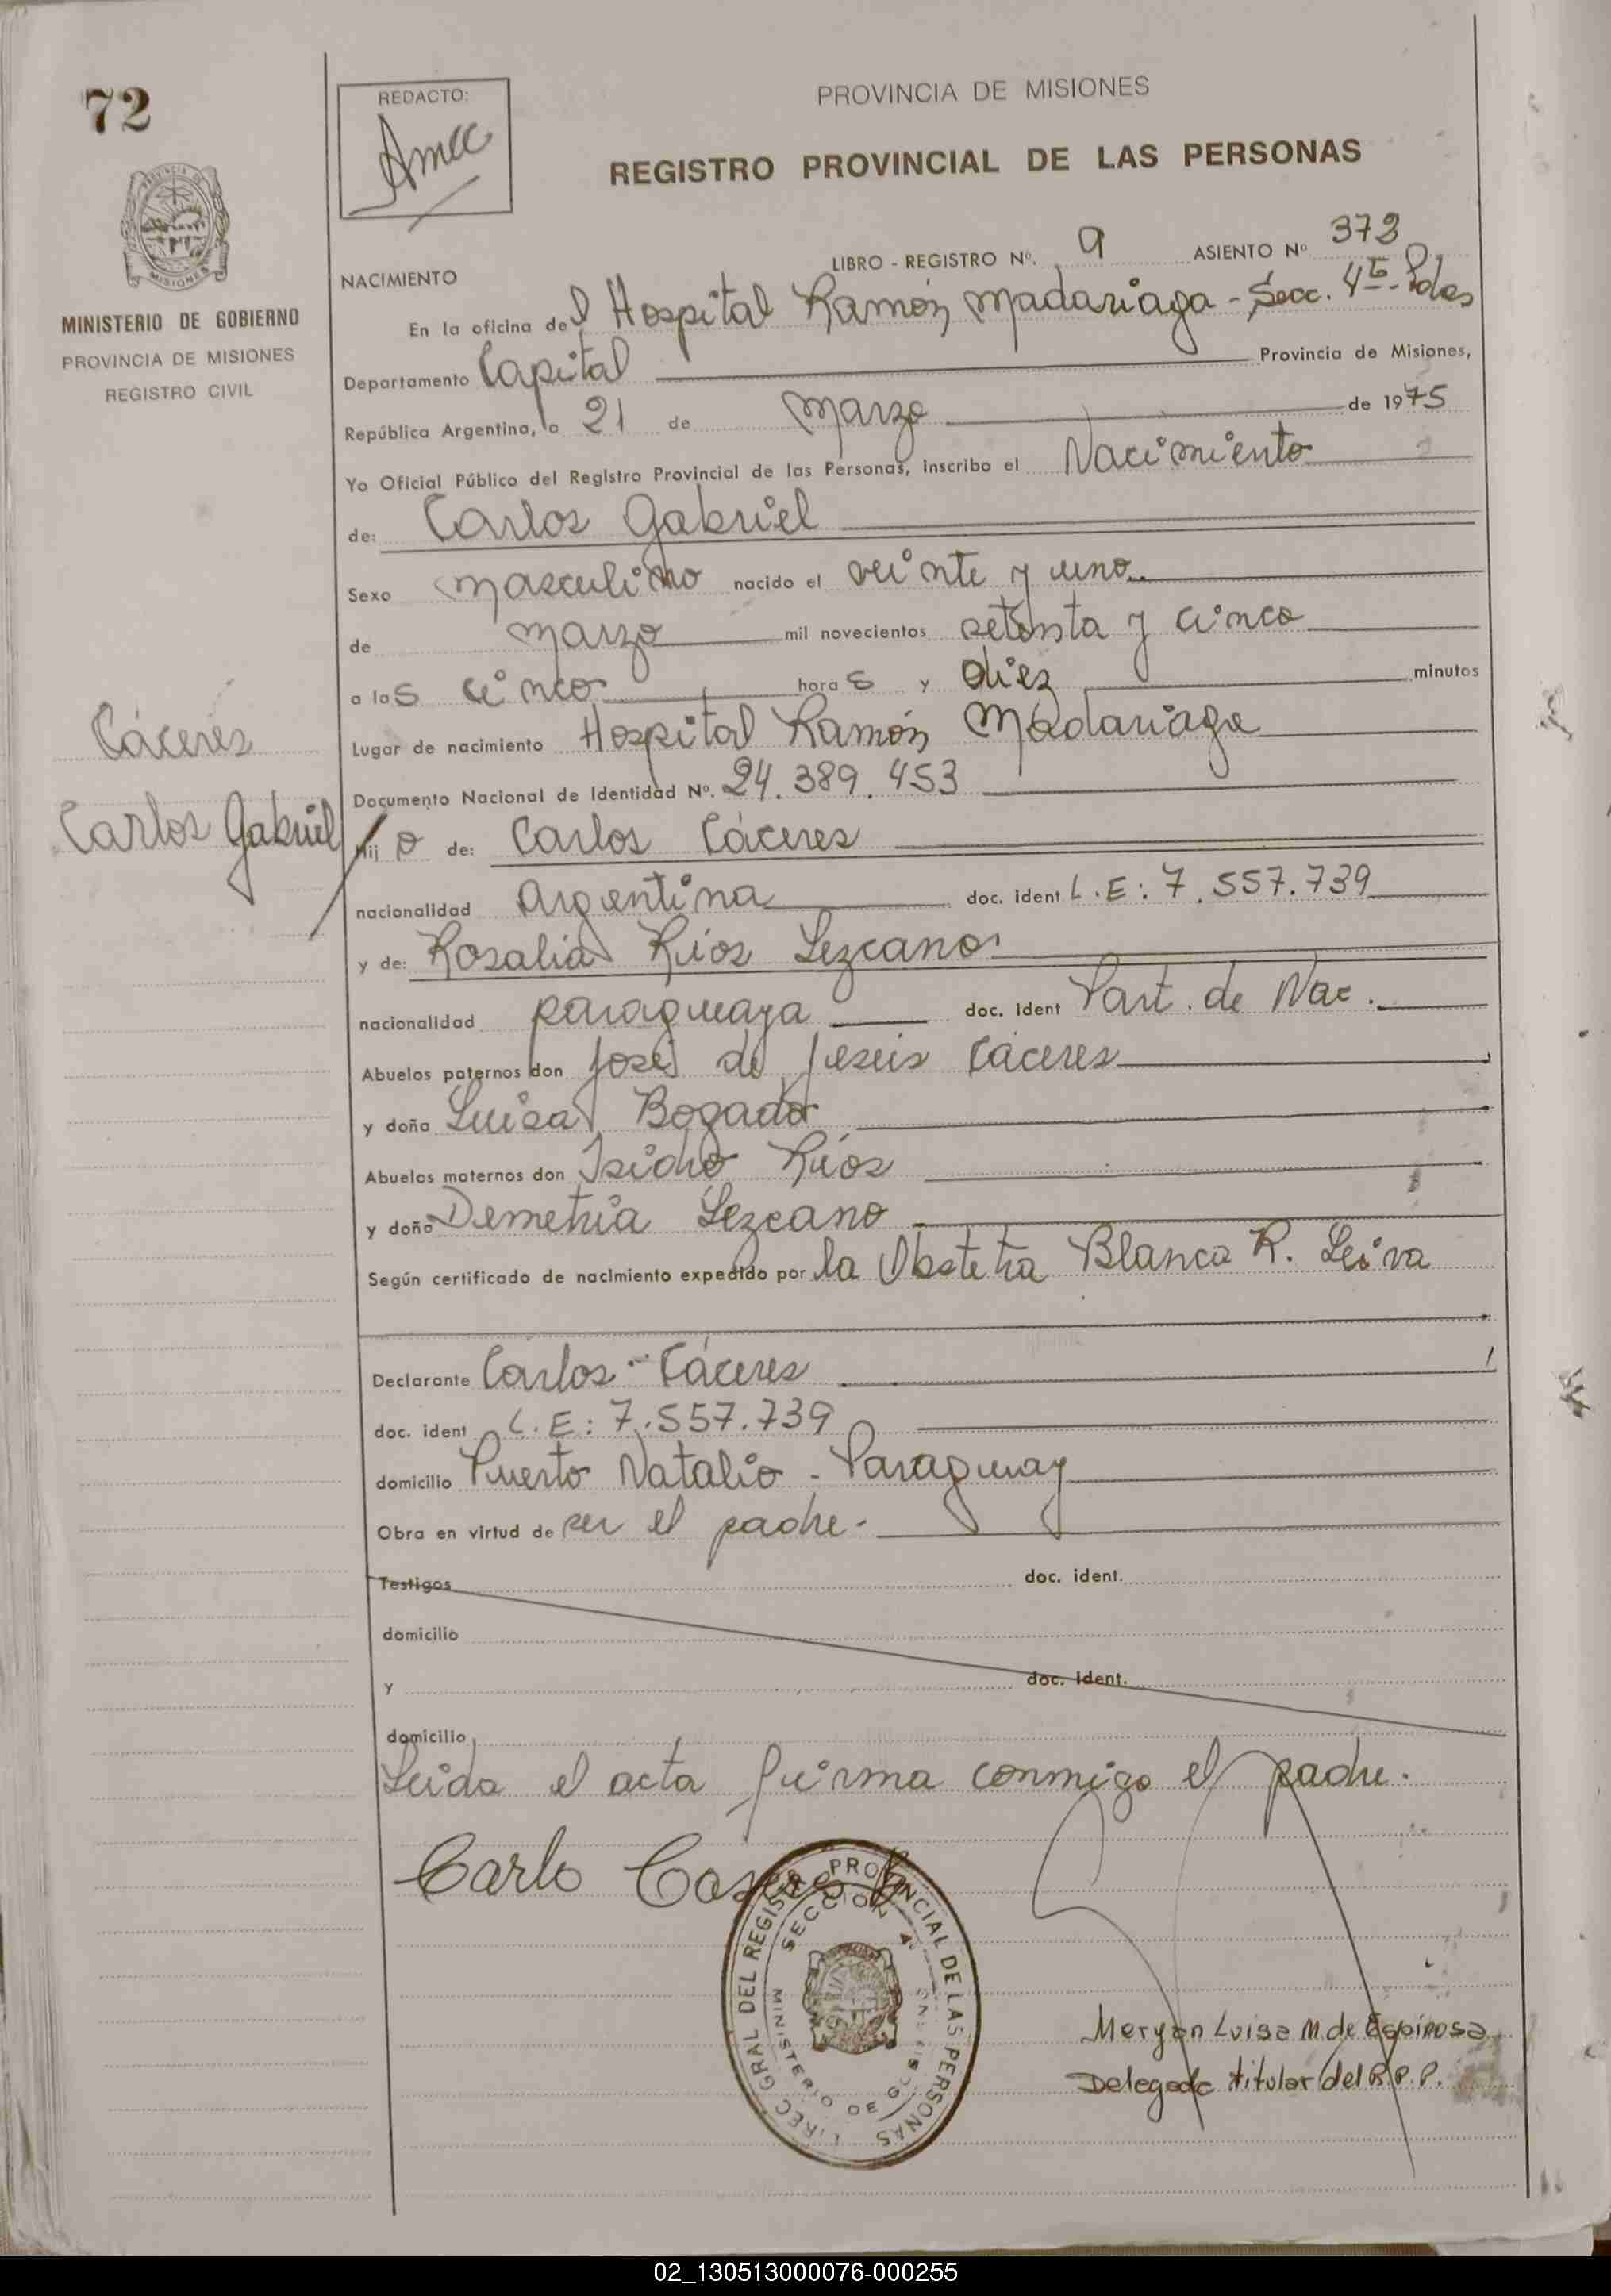 72
REDACTO:
PROVINCIA DE MISIONES
REGISTRO PROVINCIAL DE LAS PERSONAS
MINISTERIO DE GOBIERNO
PROVINCIA DE MISIONES
REGISTRO CIVIL
LIBRO - REGISTRO Nº. 9 ASIENTO Nº 373
NACIMIENTO
En la oficina del Hospital Ramón Madariaga - Secc. 4ta. Pdas
Departamento Capital Provincia de Misiones,
República Argentina, a 21 de Marzo de 1975
Yo Oficial Público del Registro Provincial de las Personas, inscribo el Nacimiento
de: Carlos Gabriel
Sexo masculino nacido el veinte y uno
de marzo mil novecientos setenta y cinco
a las cinco horas y diez minutos
Lugar de nacimiento Hospital Ramón Madariaga
Documento Nacional de Identidad Nº. 24.389.453
Cáceres
Carlos Gabriel
Hijo de: Carlos Cáceres
nacionalidad argentina doc. ident L.E: 7.557.739
y de: Rosalia Ríos Lezcano
nacionalidad paraguaya doc. ident Part. de Nac.
Abuelos paternos don José de Jesús Cáceres
y doña Luisa Bogado
Abuelos maternos don Isidro Ríos
y doña Demetria Lezcano
Según certificado de nacimiento expedido por la Obstetra Blanca R. Leiva
Declarante Carlos Cáceres
doc. ident L.E: 7.557.739
domicilio Puerto Natalio - Paraguay
Obra en virtud de ser el padre.
Testigos doc. ident.
domicilio
y doc. ident.
domicilio
Leida el acta firma conmigo el padre.
Carlo
DIREC. GRAL DEL REGISTRO PROVINCIAL DE LAS PERSONAS
SECCION 4ª
MINISTERIO DE
Meryan Luisa M. de Espinosa
Delegada titular del R.P.P.
02_130513000076-000255